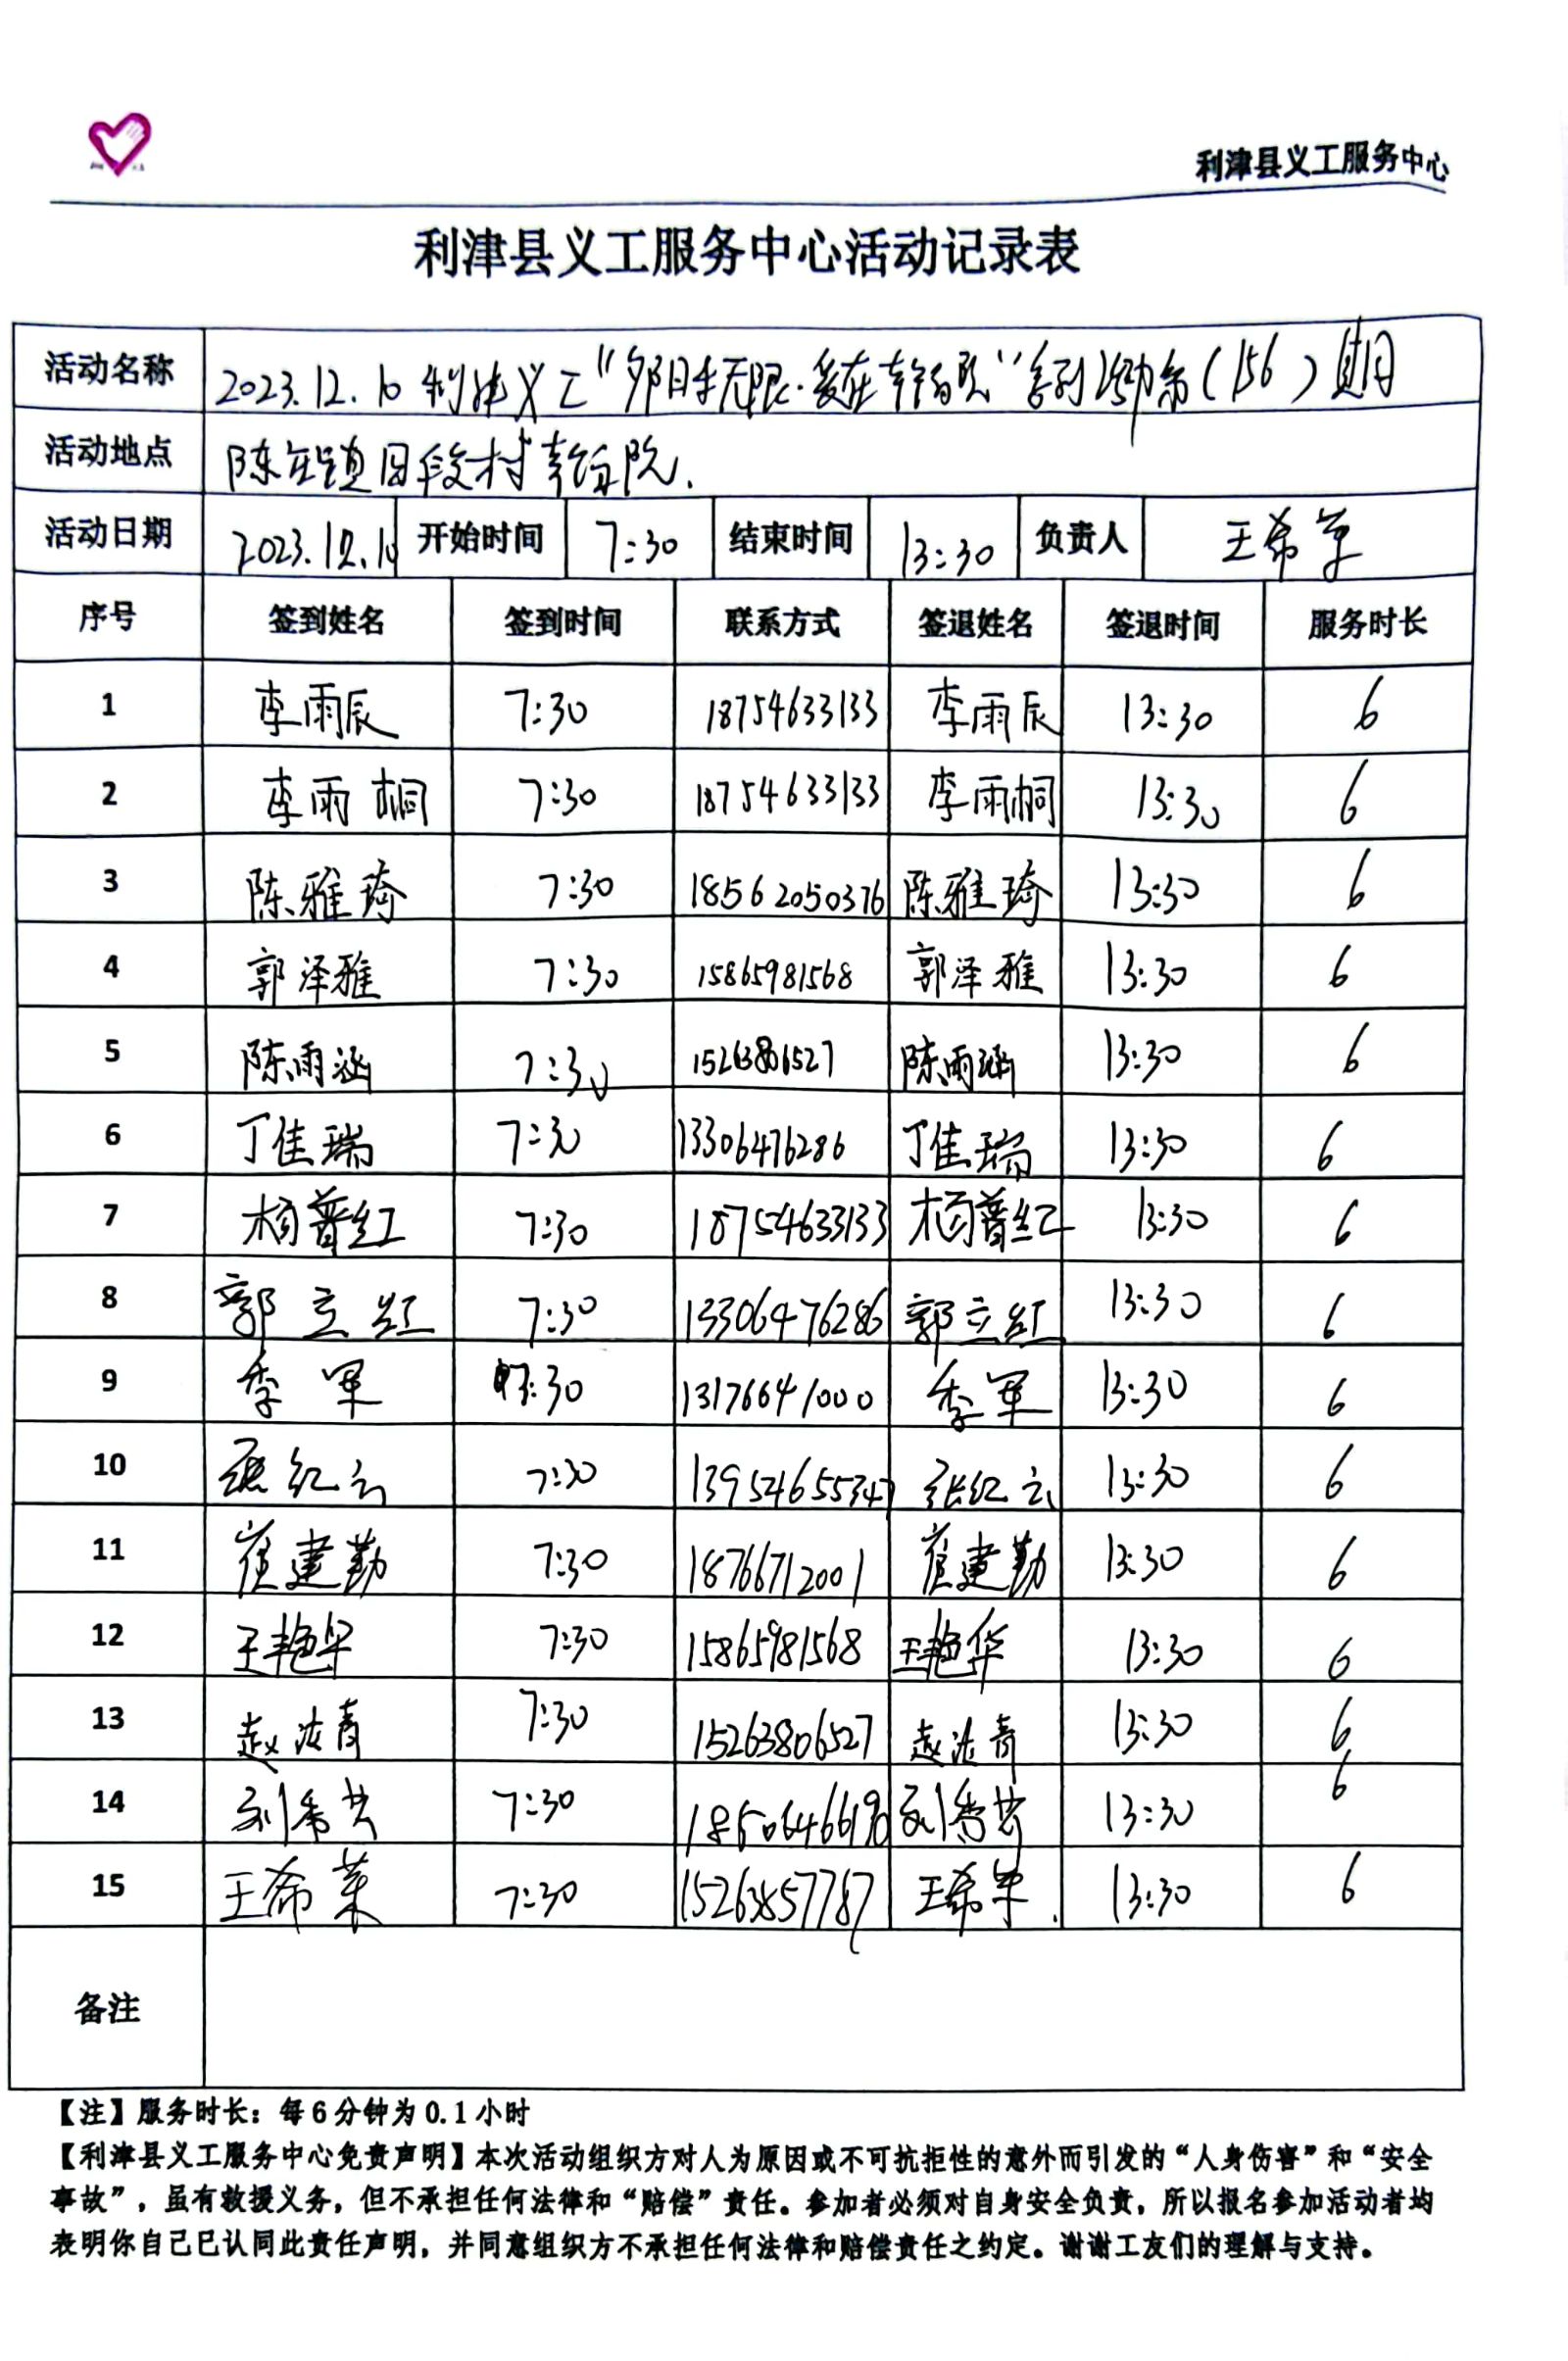 利津县义工服务中心
利津县义工服务中心活动记录表
活动名称 2023.12.10 利津义工“夕阳无限·爱在幸福院”系列活动第(156)期
活动地点 陈庄镇 村幸福院.
活动日期 2023.12.10 开始时间 7:30 结束时间 13:30 负责人 王希
序号 签到姓名 签到时间 联系方式 签退姓名 签退时间 服务时长
1 李雨辰 7:30 18754633133 李雨辰 13:30 6
2 李雨桐 7:30 18754633133 李雨桐 13:30 6
3 陈雅琦 7:30 18562050376 陈雅琦 13:30 6
4 郭泽雅 7:30 15865981568 郭泽雅 13:30 6
5 陈雨涵 7:30 15263806527 陈雨涵 13:30 6
6 丁佳瑞 7:30 13306476286 丁佳瑞 13:30 6
7 杨普红 7:30 18754633133 杨普红 13:30 6
8 郭立红 7:30 13306476286 郭立红 13:30 6
9 季军 7:30 13176641000 季军 13:30 6
10 张红云 7:30 13954655347 张红云 13:30 6
11 崔建勤 7:30 18766712001 崔建勤 13:30 6
12 王艳华 7:30 15865981568 王艳华 13:30 6
13 赵法青 7:30 15263806527 赵法青 13:30 6
14 刘秀芳 7:30 刘秀芳 13:30 6
15 王希 7:30 15263857787 王希 13:30 6
备注
【注】服务时长：每6分钟为0.1小时
【利津县义工服务中心免责声明】本次活动组织方对人为原因或不可抗拒性的意外而引发的“人身伤害”和“安全
事故”，虽有救援义务，但不承担任何法律和“赔偿”责任。参加者必须对自身安全负责，所以报名参加活动者均
表明你自己已认同此责任声明，并同意组织方不承担任何法律和赔偿责任之约定。谢谢工友们的理解与支持。